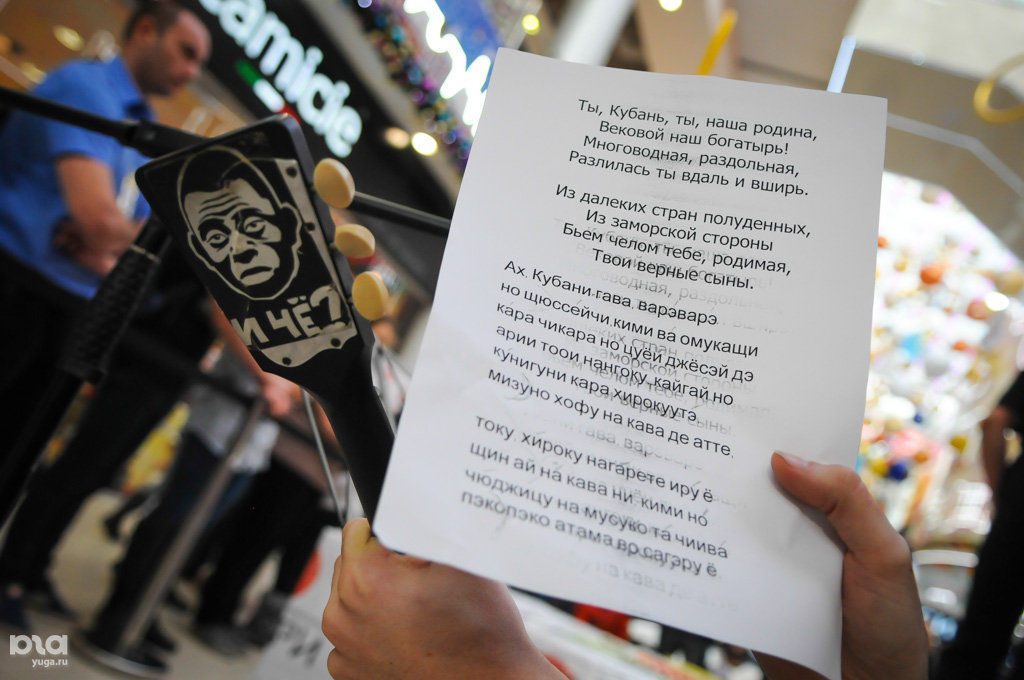 amicie
И ЧЁ?
Ты, Кубань, ты, наша родина,
Вековой наш богатырь!
Многоводная, раздольная,
Разлилась ты вдаль и вширь.
Из далеких стран полуденных,
Из заморской стороны
Бьём челом тебе, родимая,
Твои верные сыны.
Ах. Кубани гава. варэварэ
но щюссейчи.кими ва омукащи
кара чикара но цуёй джёсэй дэ
арии тоои.нангоку. кайгай но
кунигуни кара.хирокуутэ.
Мизуно хофу на кава де атте.
току. хироку нагарете иру ё
щин ай на кава ни. кими но
чюджицу на мусуко та чиива
пэкопэко атама во сагэру ё.
юга
yuga.ru